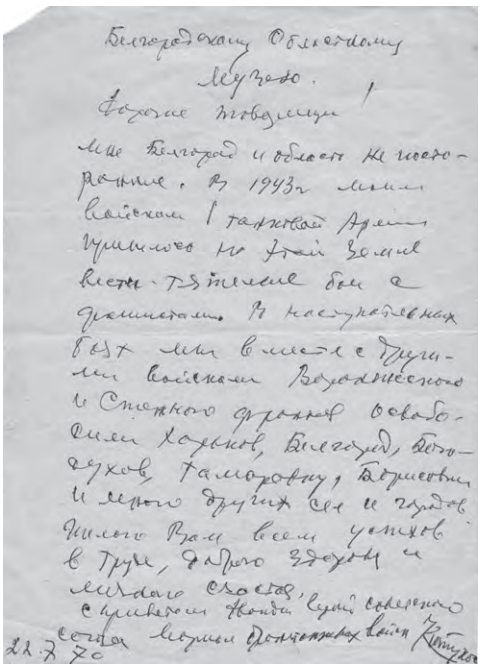 Белгородскому Областному
Музею.
Дорогие товарищи!
мне Белгород и область не посто-
ронние. В 1943 г моим
войскам 1 танковой Армии
пришлось на этой Земле
вести тяжелые бои с
фашистами. В наступательных
боях мы вместе с други-
ми войсками Воронежского
и Степного фронтов освобо-
дили Харьков, Белгород, Бого-
духов, Тамаровку, Борисовку
и много других сел и городов
Желаю Вам всем успехов
в труде, доброго здоровья и
личного счастья,
с приветом дважды Герой советского
союза Маршал бронетанковых войск Катуков
22.7.70